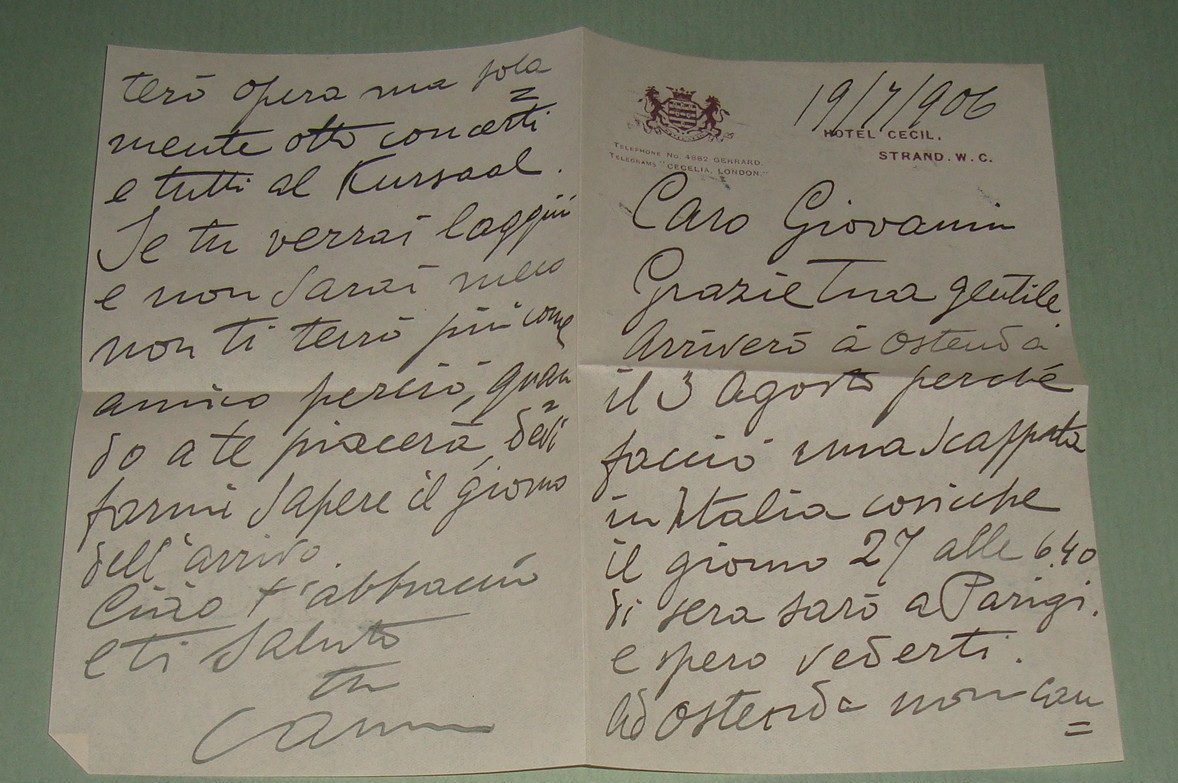 19/7/906
HOTEL CECIL.
STRAND. W. C.
TELEPHONE NO. 4882 GERRARD.
TELEGRAMS "CECELIA, LONDON."
Caro Giovannin
Grazie Tua gentile
Arriverò à Ostenda
il 3 Agosto perché
faccio una scappata
in Italia cosicche
il giorno 27 alle 6.40
di sera sarò a Parigi.
e spero vederti.
Ad Ostenda non can
terò opera ma sola
mente otto concerti
e tutti al Kursaal.
Se tu verrai laggiù
e non sarai meco
non ti terrò più come
amico perciò, quan
do a te piacerà, devi
farmi sapere il giorno
dell'arrivo
Ciao t'abbraccio
e ti saluto
tu